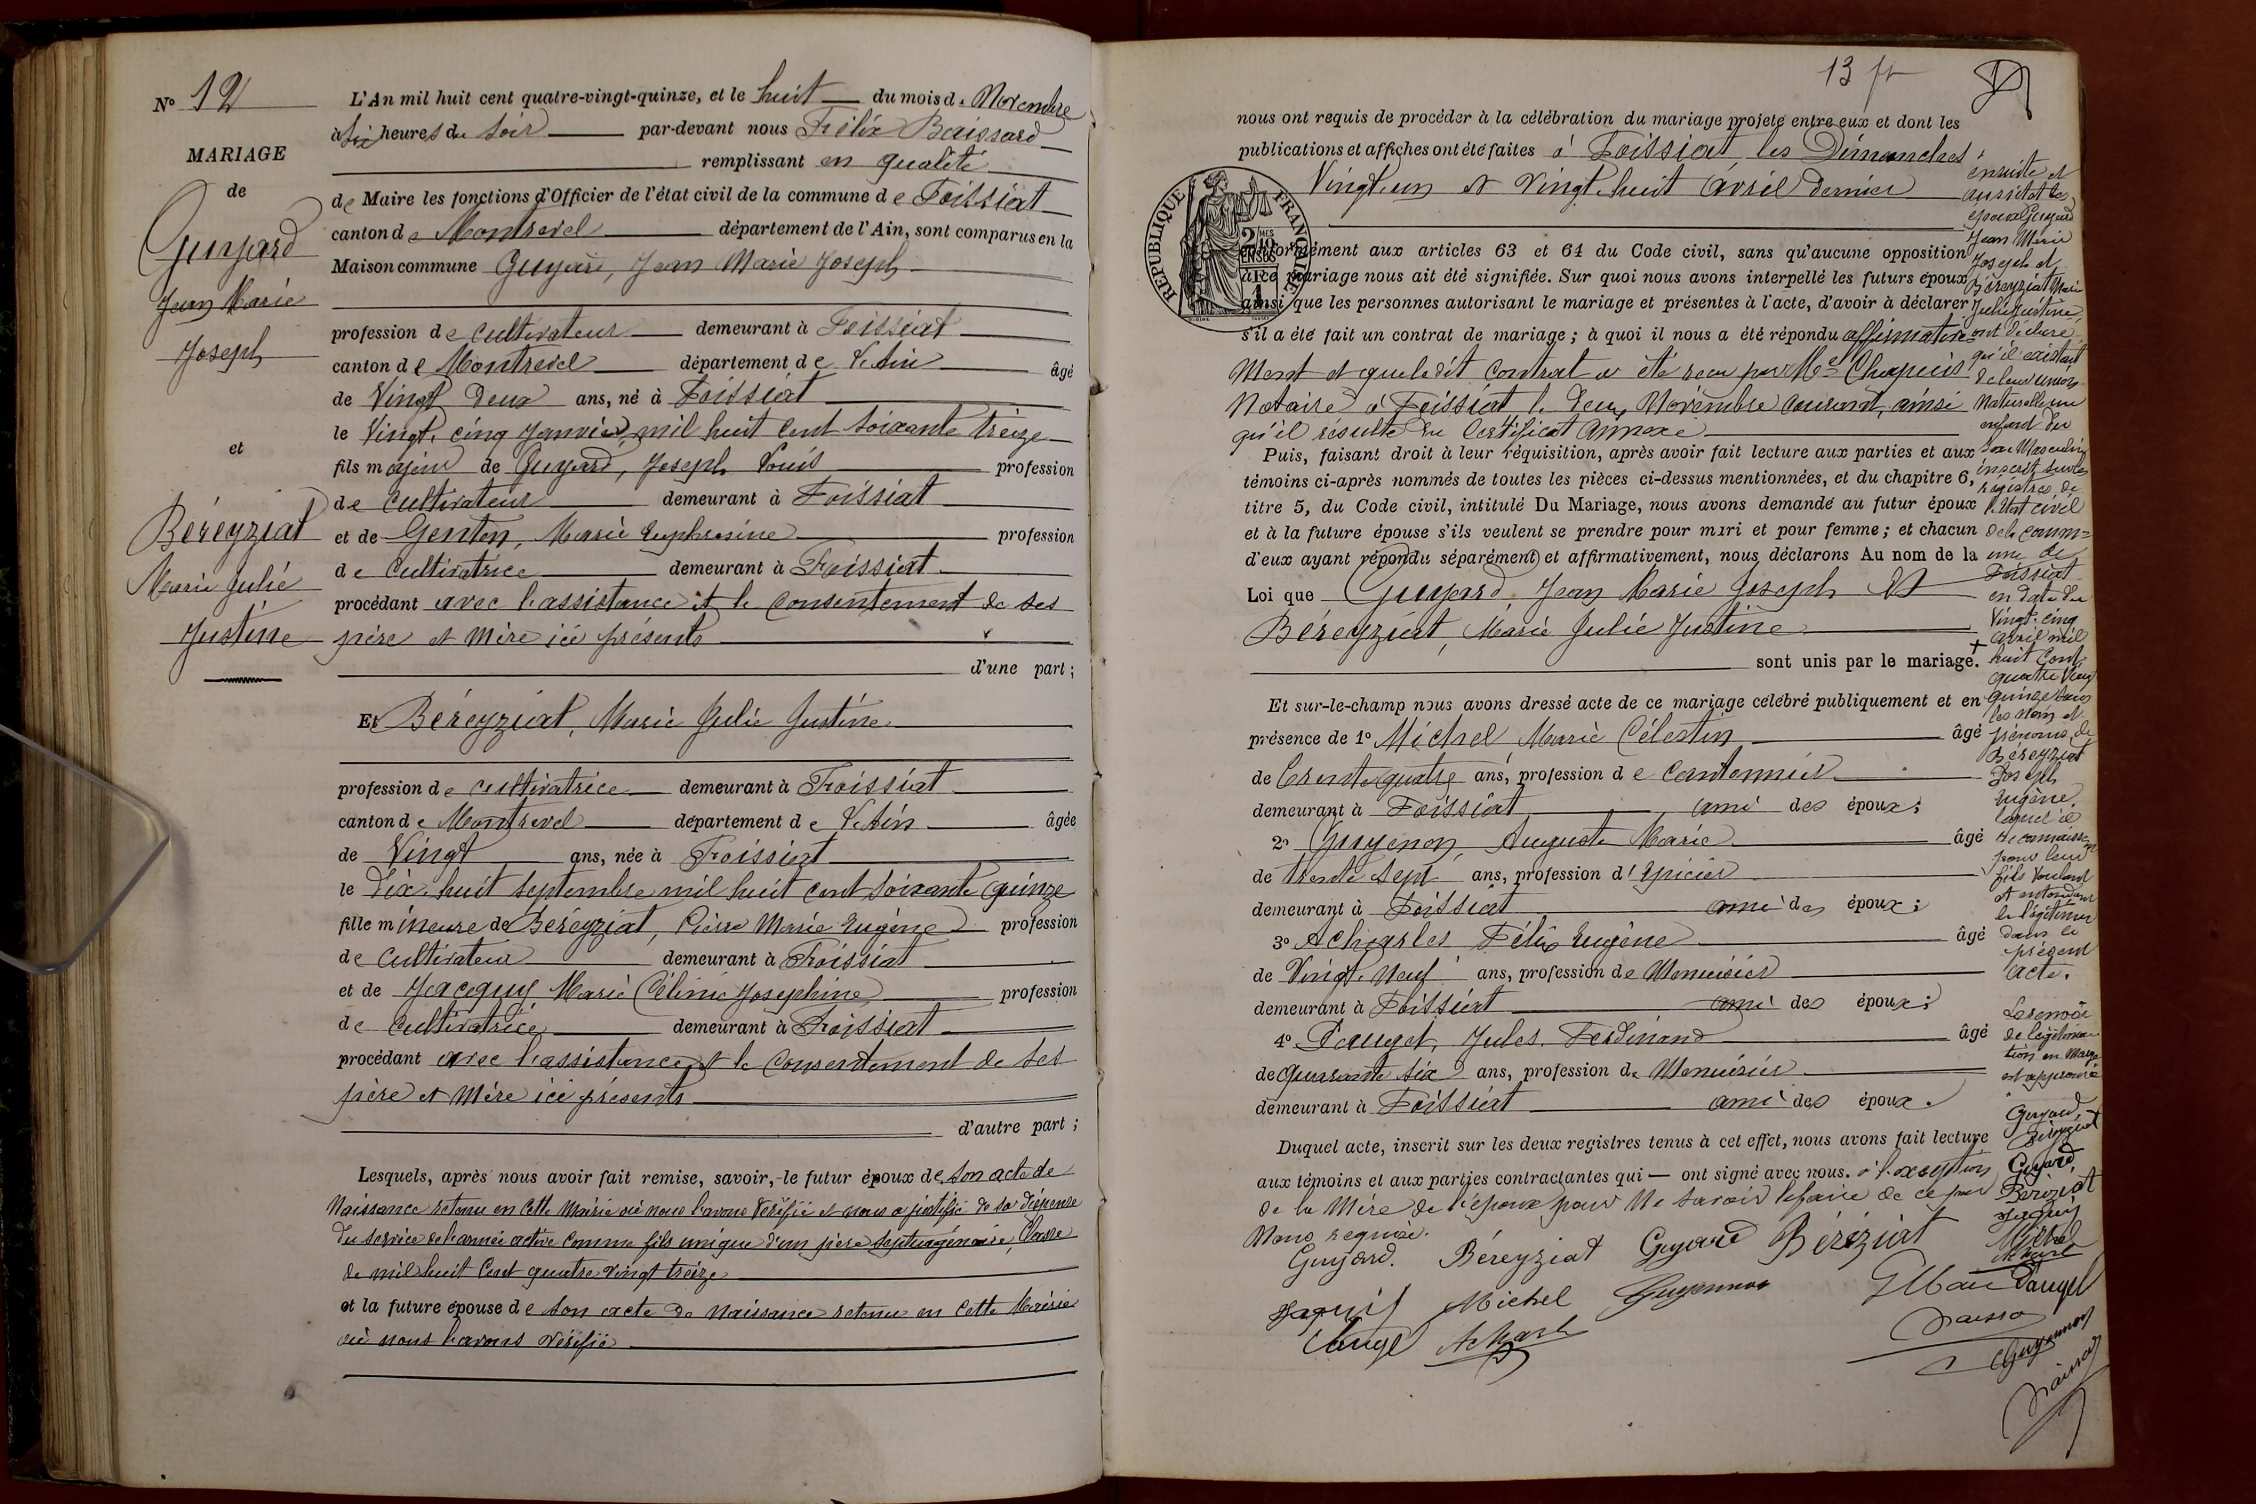 Nº 12
MARIAGE
de
Guyard
Jean Marie
Joseph
et
Béreyziat
Marie Julie
Justine
L'An mil huit cent quatre-vingt-quinze, et le huit du mois de Novembre
à six heures du soir par-devant nous Félix Baissard
remplissant en qualité
de Maire les fonctions d'Officier de l'état civil de la commune de Foissiat
canton de Montrevel département de l'Ain, sont comparus en la
Maison commune Guyard, Jean Marie Joseph
profession de cultivateur demeurant à Foissiat
canton de Montrevel département de l'Ain âgé
de Vingt Deux ans, né à Foissiat
le Vingt-cinq Janvier mil huit cent soixante treize
fils majeur de Guyard, Joseph Louis profession
de cultivateur demeurant à Foissiat
et de Genton, Marie Euphrosine profession
de cultivatrice demeurant à Foissiat
procédant avec l'assistance et le consentement de ses
père et mère ici présents
d'une part ;
Et Béreyziat, Marie Julie Justine
profession de cultivatrice demeurant à Foissiat
canton de Montrevel département de l'Ain âgée
de Vingt ans, née à Foissiat
le Dix-huit septembre mil huit cent soixante quinze
fille mineure de Béreyziat, Pierre Marie Eugène profession
de cultivateur demeurant à Foissiat
et de Jacquy, Marie Céline Joséphine profession
de cultivatrice demeurant à Foissiat
procédant avec l'assistance et le consentement de ses
père et mère ici présents
d'autre part ;
Lesquels, après nous avoir fait remise, savoir,-le futur époux de son acte de
Naissance retenu en cette Mairie où nous l'avons vérifié et nous a justifié de sa dispense
du service de l'armée active comme fils unique d'un père septuagénaire, Classe
de mil huit Cent quatre vingt treize
et la future épouse de son acte de naissance retenu en cette Mairie
où nous l'avons vérifié
13
nous ont requis de procéder à la célébration du mariage projeté entre eux et dont les
publications et affiches ont été faites à Foissiat les Dimanches
Vingt-un et Vingt-huit avril dernier
RÉPUBLIQUE FRANÇAISE
conformément aux articles 63 et 64 du Code civil, sans qu'aucune opposition
à ce mariage nous ait été signifiée. Sur quoi nous avons interpellé les futurs époux
ainsi que les personnes autorisant le mariage et présentes à l'acte, d'avoir à déclarer
s'il a été fait un contrat de mariage ; à quoi il nous a été répondu affirmative-
ment et que ledit contrat a été reçu par Me Chapuis
Notaire à Foissiat le deux Novembre courant, ainsi
qu'il résulte du Certificat annexé
Puis, faisant droit à leur réquisition, après avoir fait lecture aux parties et aux
témoins ci-après nommés de toutes les pièces ci-dessus mentionnées, et du chapitre 6,
titre 5, du Code civil, intitulé Du Mariage, nous avons demandé au futur époux
et à la future épouse s'ils veulent se prendre pour mari et pour femme ; et chacun
d'eux ayant répondu séparément et affirmativement, nous déclarons Au nom de la
Loi que Guyard, Jean Marie Joseph et
Béreyziat, Marie Julie Justine
sont unis par le mariage.
Et sur-le-champ nous avons dressé acte de ce mariage célébré publiquement et en
présence de 1º Michel Marie Célestin âgé
de Trente quatre ans, profession de cantonnier
demeurant à Foissiat ami des époux ;
2º Guyenon, Auguste Marie âgé
de trente sept ans, profession d'épicier
demeurant à Foissiat ami des époux ;
3º Acharles Félix Eugène âgé
de Vingt-Neuf ans, profession de Menuisier
demeurant à Foissiat ami des époux ;
4º Pauget, Jules Ferdinand âgé
de quarante six ans, profession de Menuisier
demeurant à Foissiat ami des époux.
Duquel acte, inscrit sur les deux registres tenus à cet effet, nous avons fait lecture
aux témoins et aux parties contractantes qui — ont signé avec nous. à l'exception
de la Mère de l'époux pour ne savoir le faire de ce par
Nous requise.
Guyard. Béreyziat Guyard Béréziat
Jaquis Michel Guyennon
Pauget
ensuite et
aussitôt les
époux Guyard
Jean Marie
Joseph et
Béreyziat Marie
Julie Justine
ont déclaré
qu'il existait
de leur union
naturelle un
enfant du
sexe Masculin
inscrit sur les
registres de
l'état civil
de la comm=
une de
Foissiat
en date du
Vingt-cinq
avril mil
huit Cent
quatre Vingt
Quinze sous
les nom et
prénoms de
Béreyziat
Joseph
Eugène.
lequel il
reconnaisse
pour leur
fils voulant
et entendant
le légitimer
dans le
présent
acte.
Le renvoi
de légitima
tion en marge
est approuvé
Guyard
Béreyziat
Guyard
Béréziat
Jaquis
Michel
Pauget
Guyennon